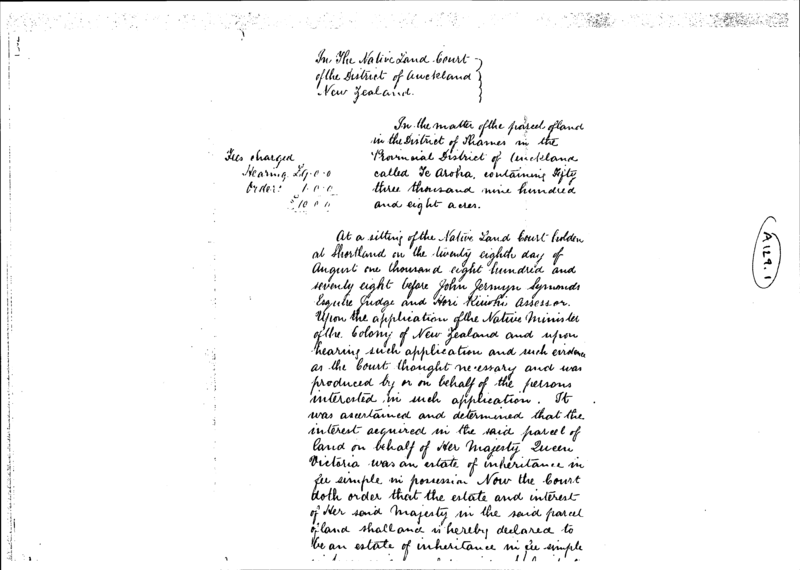 In The Native Land Court
of the District of Auckland
New Zealand.
In the matter of the parcel of land
in the District of Thames in the
Provincial District of Auckland
called Te Aroha, containing Fifty
three thousand nine hundred
and eight acres.
Fees charged
Hearing £9.0.0
Order: 1.0.0
£10 0 0
At a sitting of the Native Land Court holden
at Shortland on the twenty eighth day of
August one thousand eight hundred and
seventy eight before John Jermyn Symonds
Esquire Judge and Hori Assessor.
Upon the application of the Native Minister
of the Colony of New Zealand and upon
hearing such application and such evidence
as the Court thought necessary and was
produced by or on behalf of the persons
interested in such application. It
was ascertained and determined that the
interest acquired in the said parcel of
land on behalf of Her Majesty Queen
Victoria was an estate of inheritance in
fee simple in possession Now the Court
doth order that the estate and interest
of Her said Majesty in the said parcel
of land shall and is hereby declared to
be an estate of inheritance in fee simple
A129.1